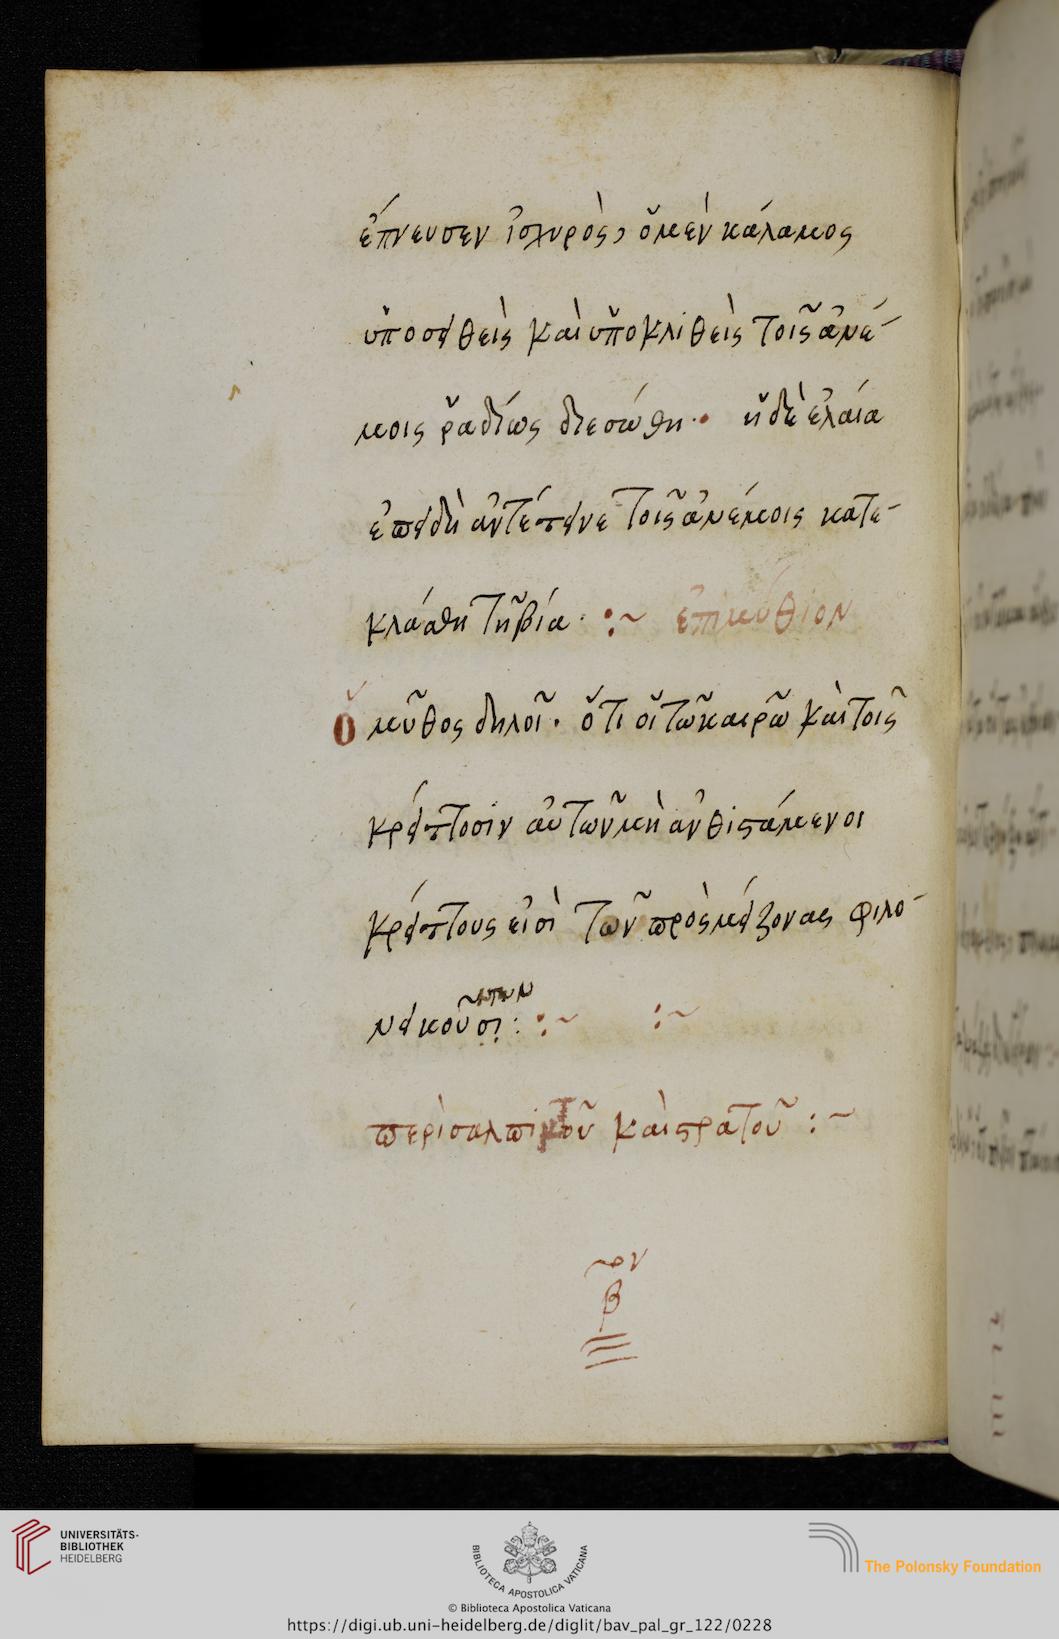 ἔπνευσεν ἰσχυρὸς, ὁ μὲν κάλαμος
ὑποσεισθεὶς καὶ ὑποκλιθεὶς τοῖς ἀνέ-
μοις ῥαδίως διεσώθη· ἡ δὲ ἐλαία
ἐπειδὴ ἀντέτεινε τοῖς ἀνέμοις κατε-
κλάσθη τῆ βία· :~ ἐπιμύθιον
Ὁ μῦθος δηλοῖ· ὅτι οἱ τῶ καιρῶ καὶ τοῖς
κρείττοσιν αὐτῶν μὴ ἀνθιστάμενοι
κρείττους εἰσὶ τῶν πρὸς μείζονας φιλο-
νεικούσι: :~ :~
περὶ σαλπικτοῦ καὶ στρατοῦ :~
ον
β
UNIVERSITÄTS-
BIBLIOTHEK
HEIDELBERG
BIBLIOTECA APOSTOLICA VATICANA
The Polonsky Foundation
© Biblioteca Apostolica Vaticana
https://digi.ub.uni-heidelberg.de/diglit/bav_pal_gr_122/0228